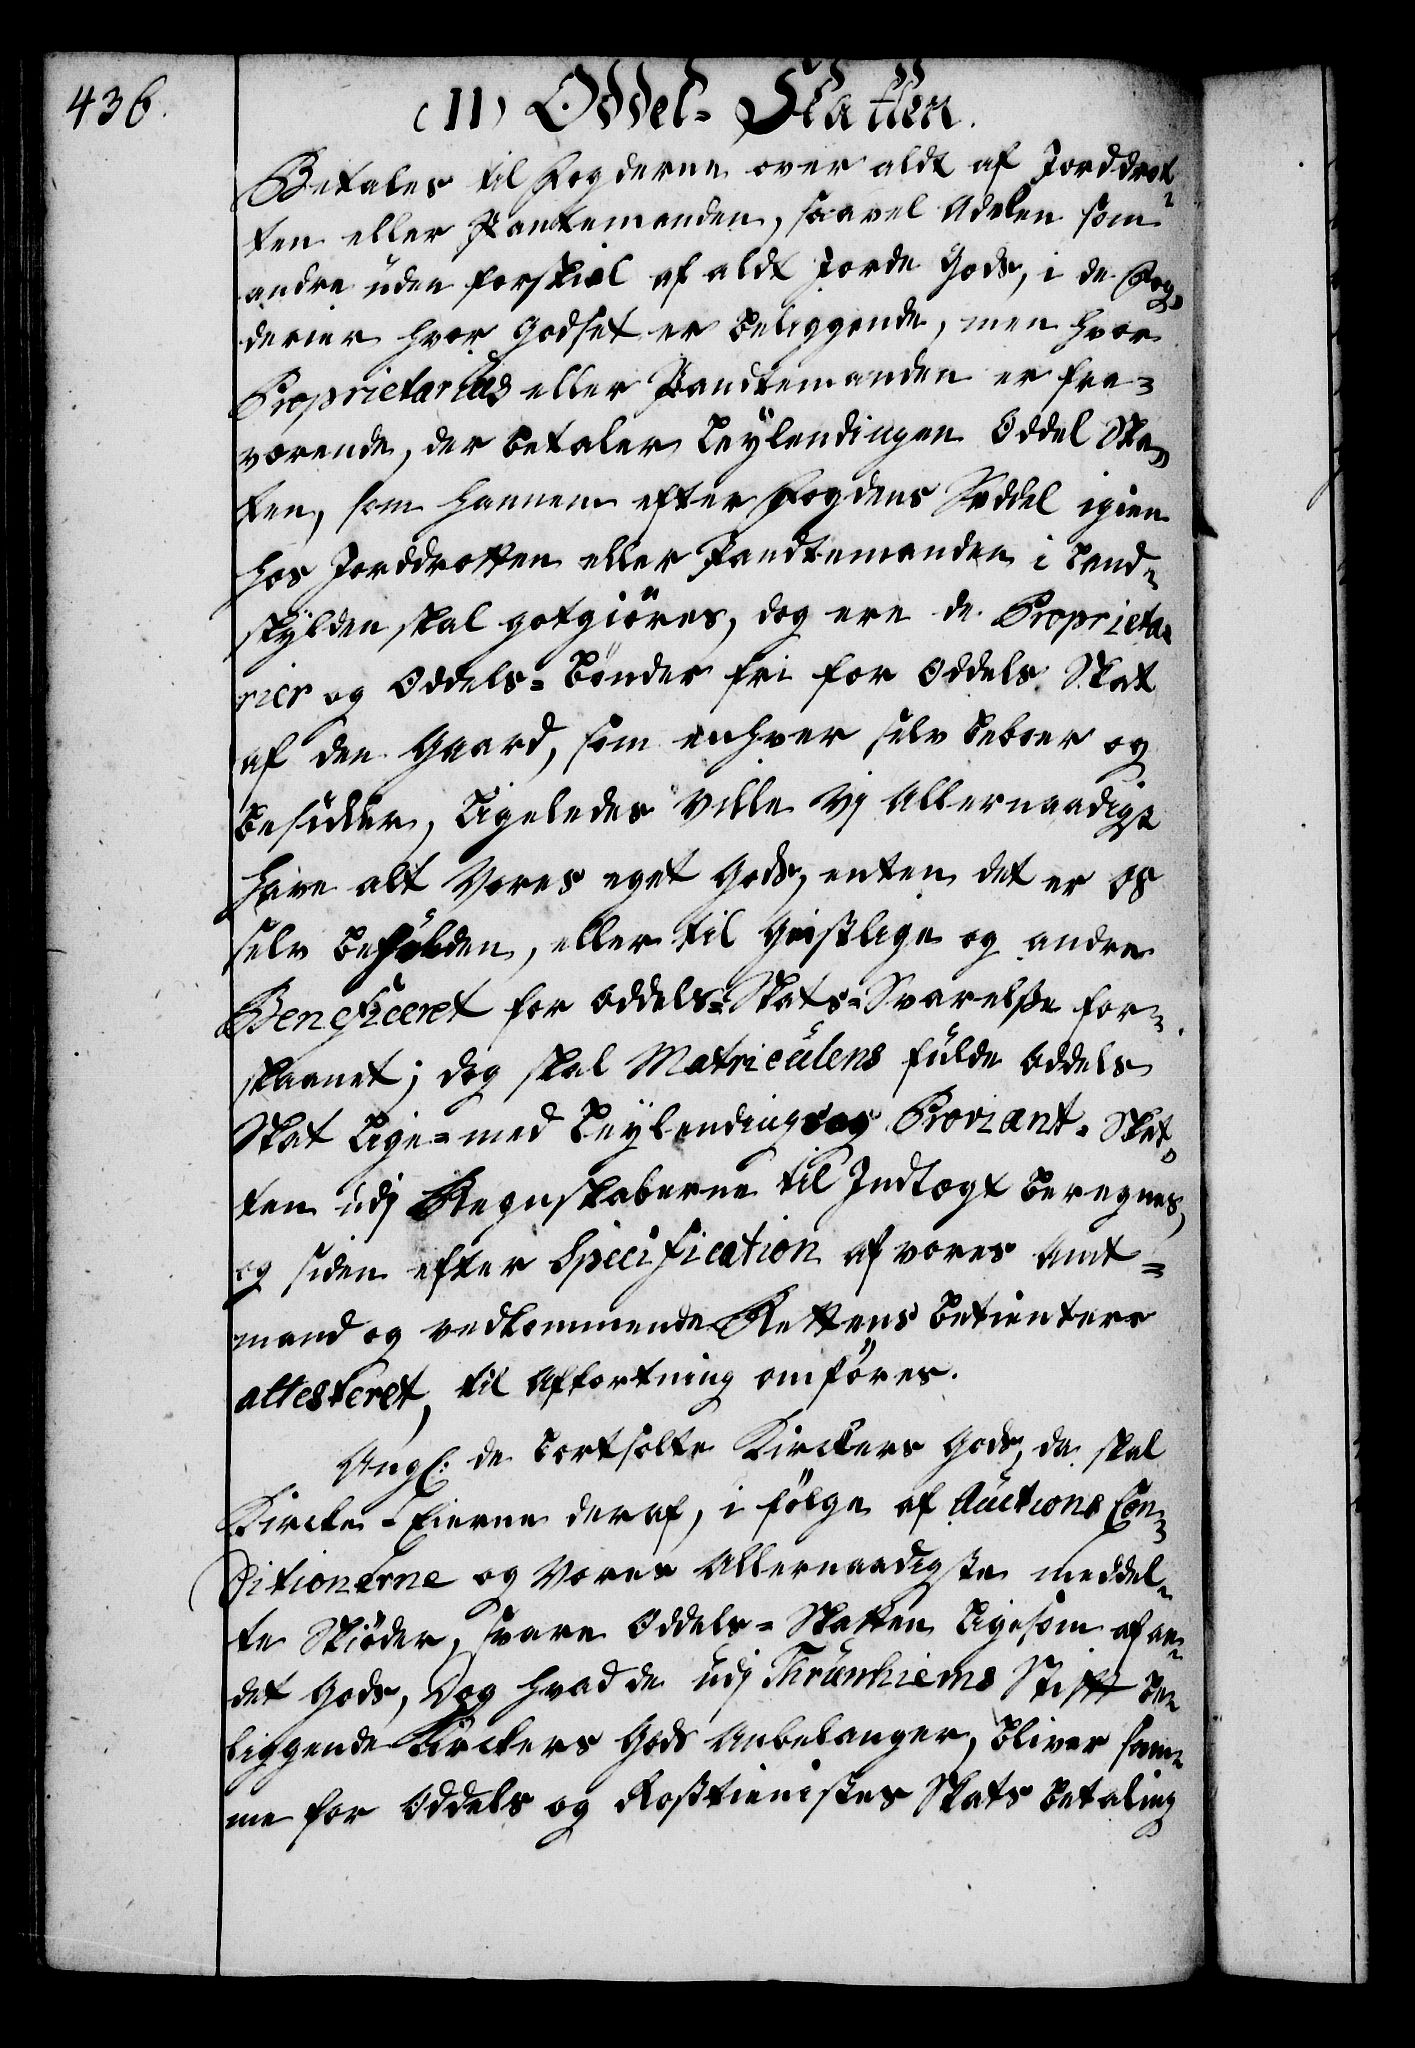 436.
(II) Oddel-Skatten.
Betales til Fogderne over aldt af Jorddrot-
ten eller Pantemanden, saavel Adelen som
andre uden forskiel af aldt Jorde Gods, i de Fog-
derier hvor Godset er beliggende, men hvor
Proprietarius eller Pandtemanden er fra-
værende, der betaler Leylendingen Oddel Skat-
ten, som hannem efter Fogdens Seddel igien
hos Jorddrotten eller Pandtemanden i Land-
skylden skal gotgiöres, dog ere de Proprieta-
rier og Oddels-Bönder fri for Oddels Skat
af den Gaard, som enhver selv beboer og
besidder, Ligeledes Ville Vj Allernaadigst
have alt Vores eget Gods, enten det er Os
selv beholden, eller til Geistlige og andre
Beneficeret for Oddels-Skats-Svarelse for-
skaanet; dog skal Matriculens fulde Oddels
Skat Lige-med Leylendings og Proviant-Skat-
ten udj Regnskaberne til Indtægt beregnes,
og siden efter Specification af vores Amt-
mand og vedkommende Rettens betienters
attesteret, til Afkortning omföres.
Angl: de bortsolte Kirckers Gods, da skal
Kircke-Eierne deraf, i fölge af Auctions Con-
ditionerne og Vores Allernaadigste meddel-
te Skiöder, svare Oddels-Skatten Ligesom af an-
det Gods, Dog hvad de udj Thrunhiems Stifft be-
liggende Kirckers Gods Anbelanger, bliver sam-
me for Oddels og Rosstienistes Skats betaling